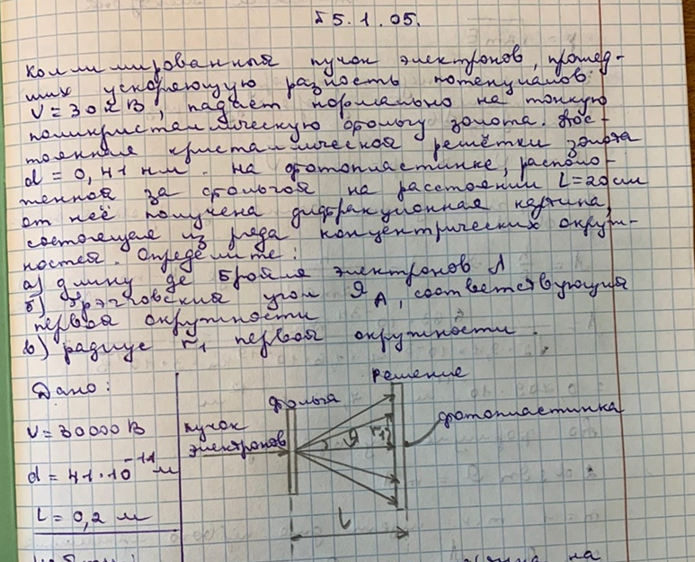 № 5.1.05.
Коллимированный пучок электронов, прошед-
ших ускоряющую разность потенциалов
V=30кВ, падает нормально на тонкую
поликристаллическую фольгу золота. Пос-
тоянная кристаллической решётки золота
d = 0,41 нм. На фотопластинке, располо-
женной за фольгой на расстоянии L=20см
от неё получена дифракционная картина,
состоящая из ряда концентрических окруж-
ностей. Определите:
а) длину де Бройля электронов Λ
б) Брэгговский угол , соответствующий
первой окружности
в) радиус r₁ первой окружности.
Дано:
V=30000В
d = 41·10⁻¹¹ м
L = 0,2 м
Решение
фольга
пучок
электронов
r₁
фотопластинка
L
на